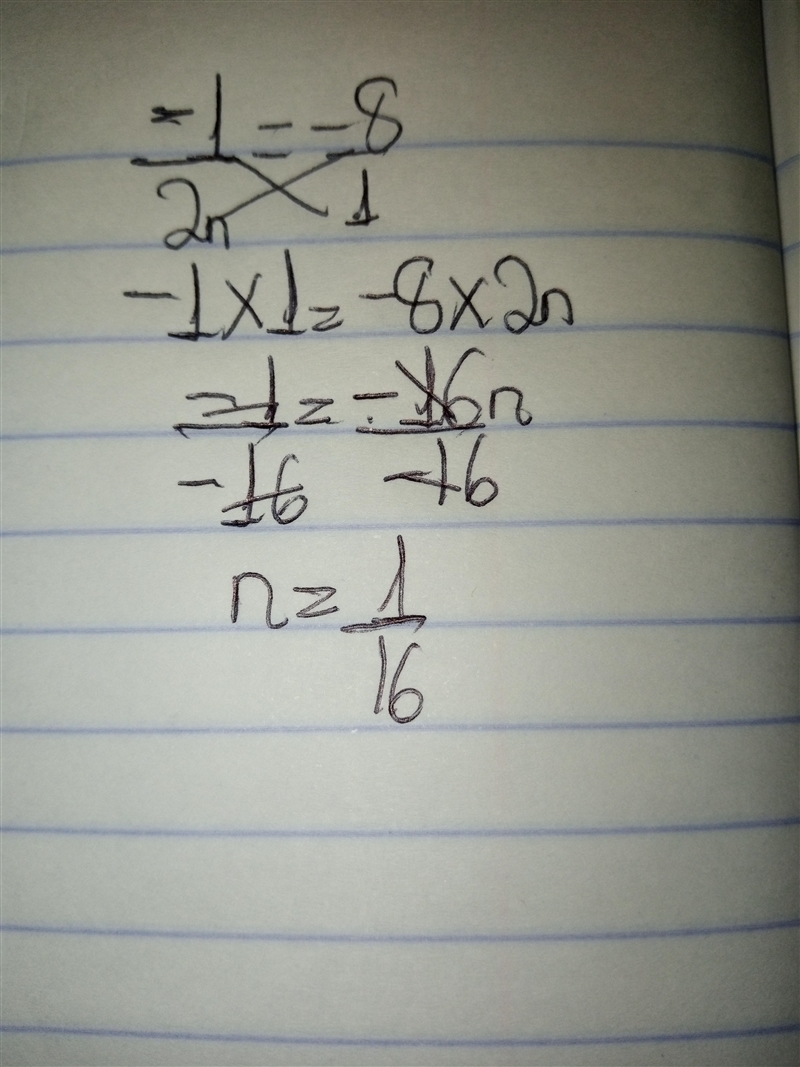 -1 = -8
2n 1
-1×1= -8×2n
-1 = -16n
-16 -16
n= 1
16